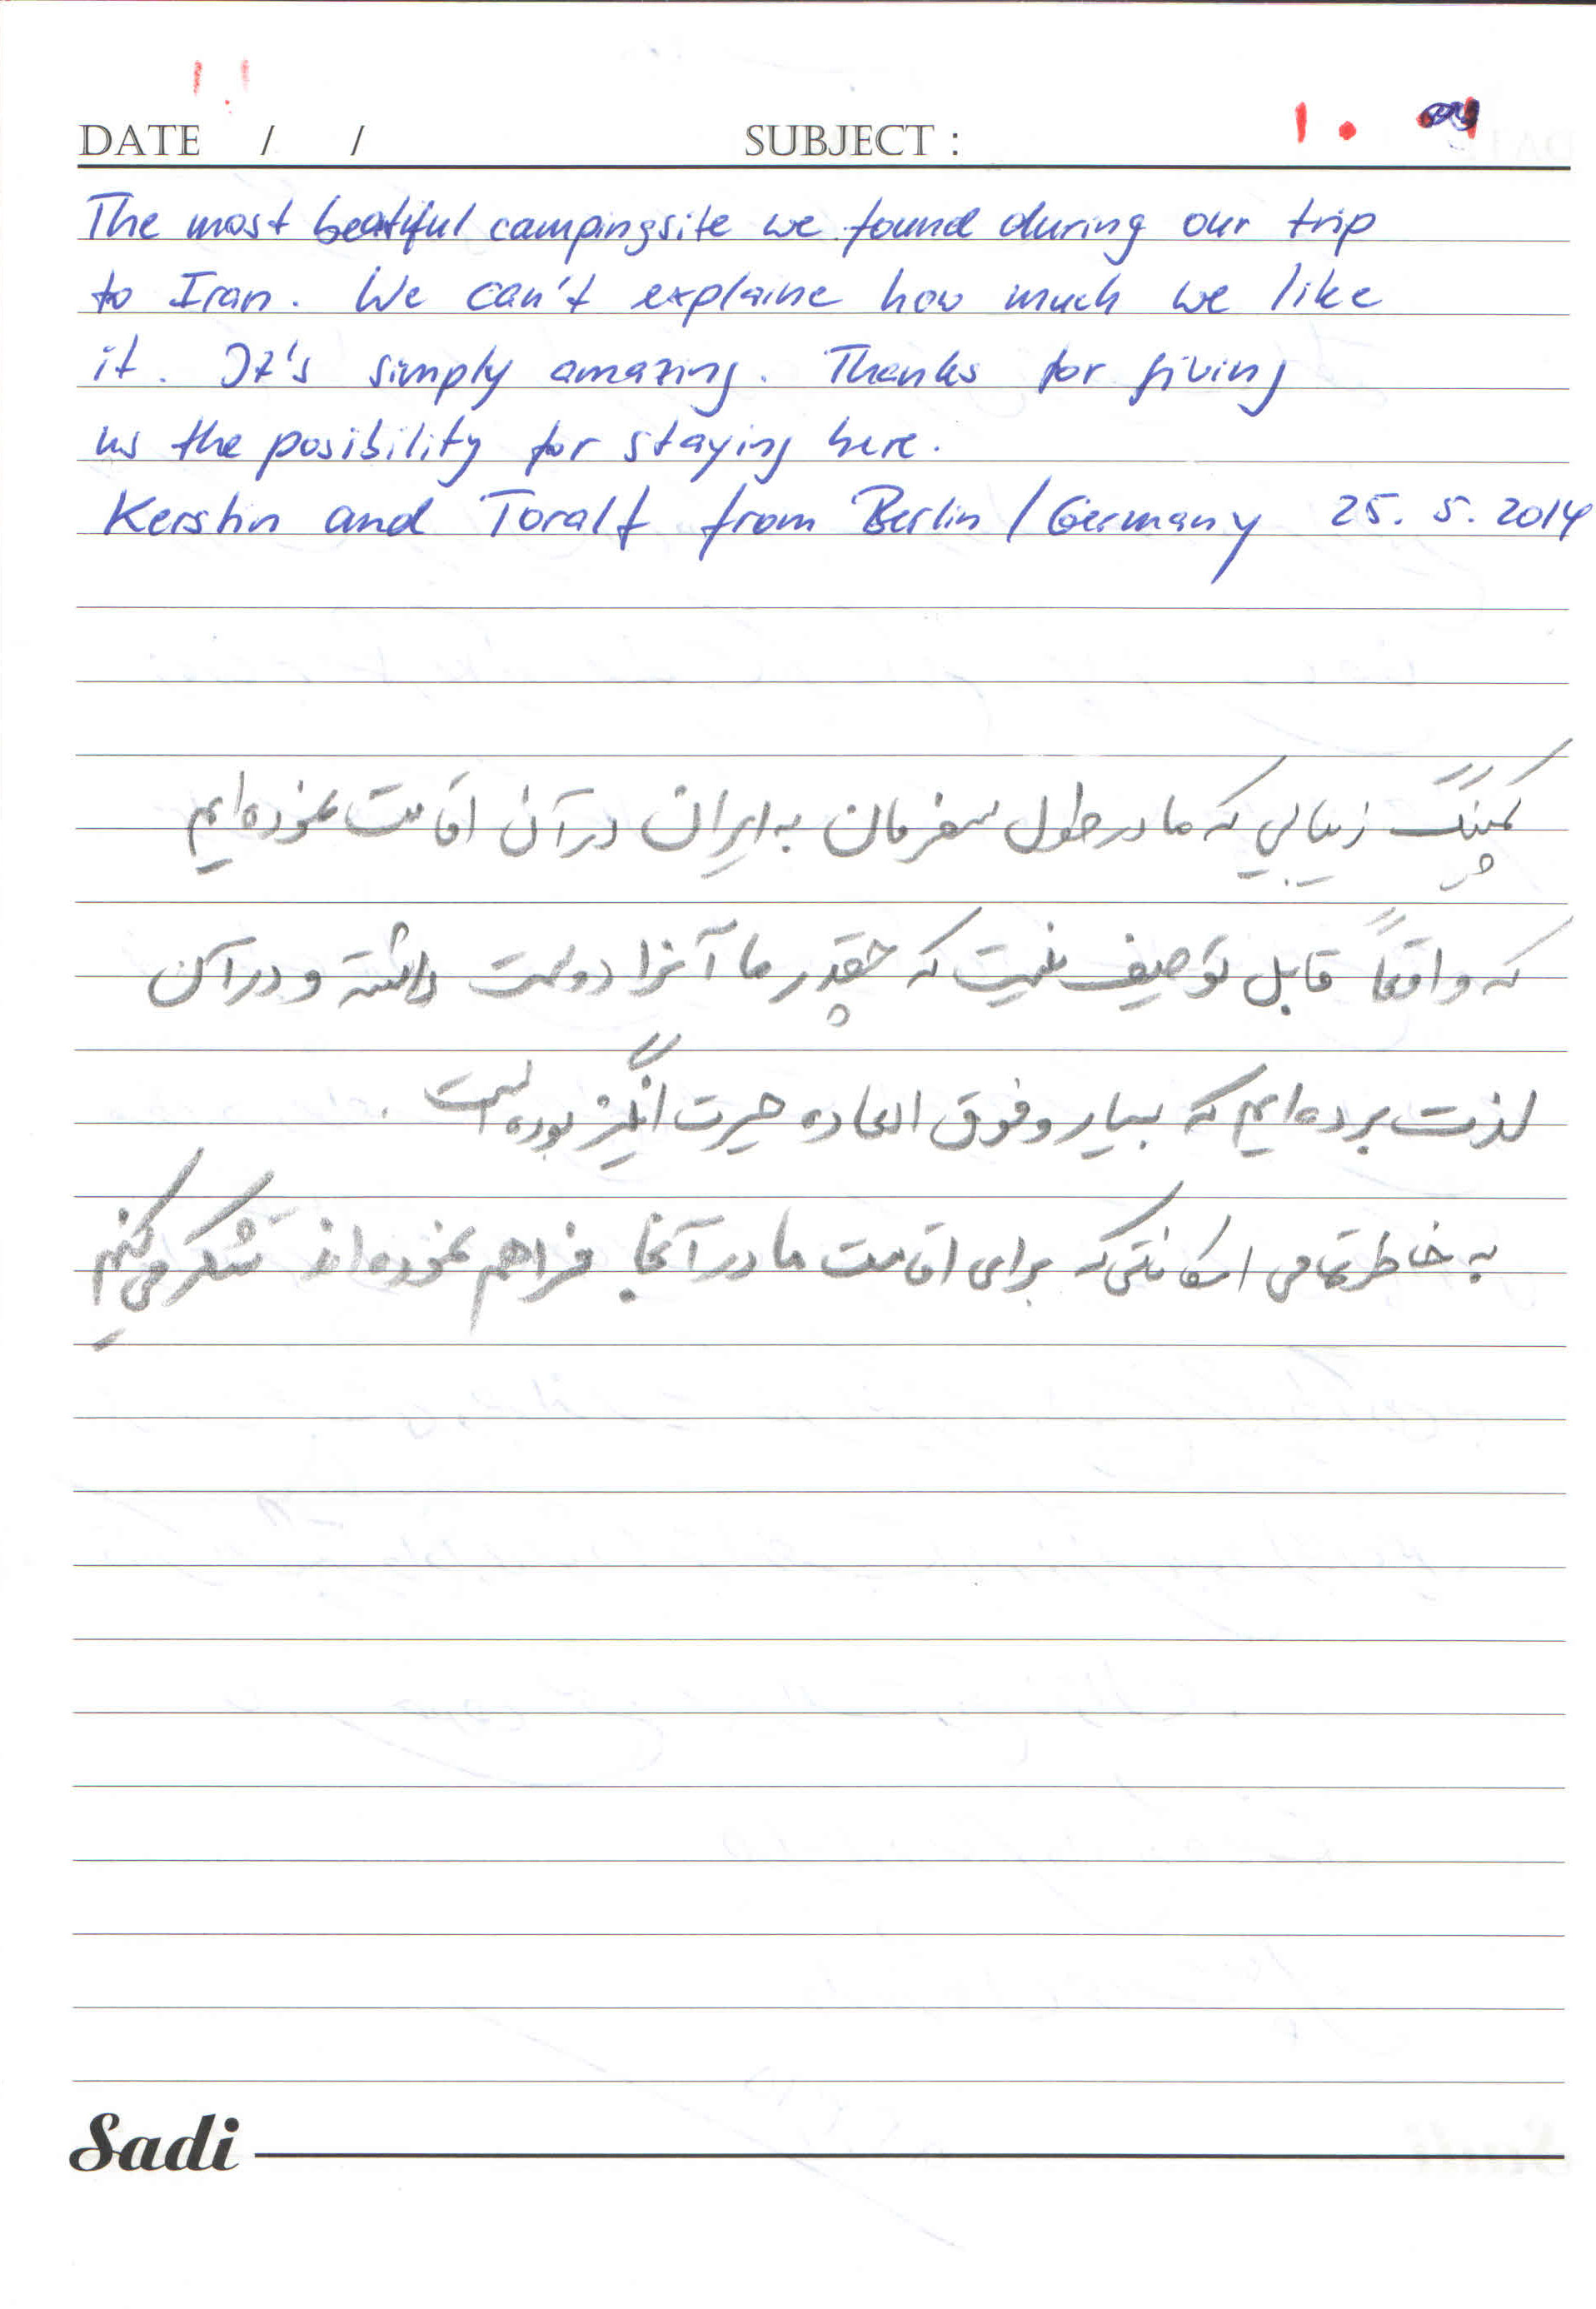 DATE / / SUBJECT :
The most beatiful campingsite we found during our trip
to Iran. We can't explaine how much we like
it. It's simply amazing. Thanks for giving
us the posibility for staying here.
Kerstin and Toralf from Berlin / Germany 25. 5. 2014
کمپینگ زیبایی که ما در طول سفرمان به ایران در آن اقامت نموده‌ایم
که واقعاً قابل توصیف نیست که چقدر ما آنرا دوست داشته و در آن
لذت برده‌ایم که بسیار و فوق العاده حیرت انگیز بوده است .
به خاطر تمامی امکاناتی که برای اقامت ما در آنجا فراهم نموده‌اند تشکر می‌کنیم
Sadi